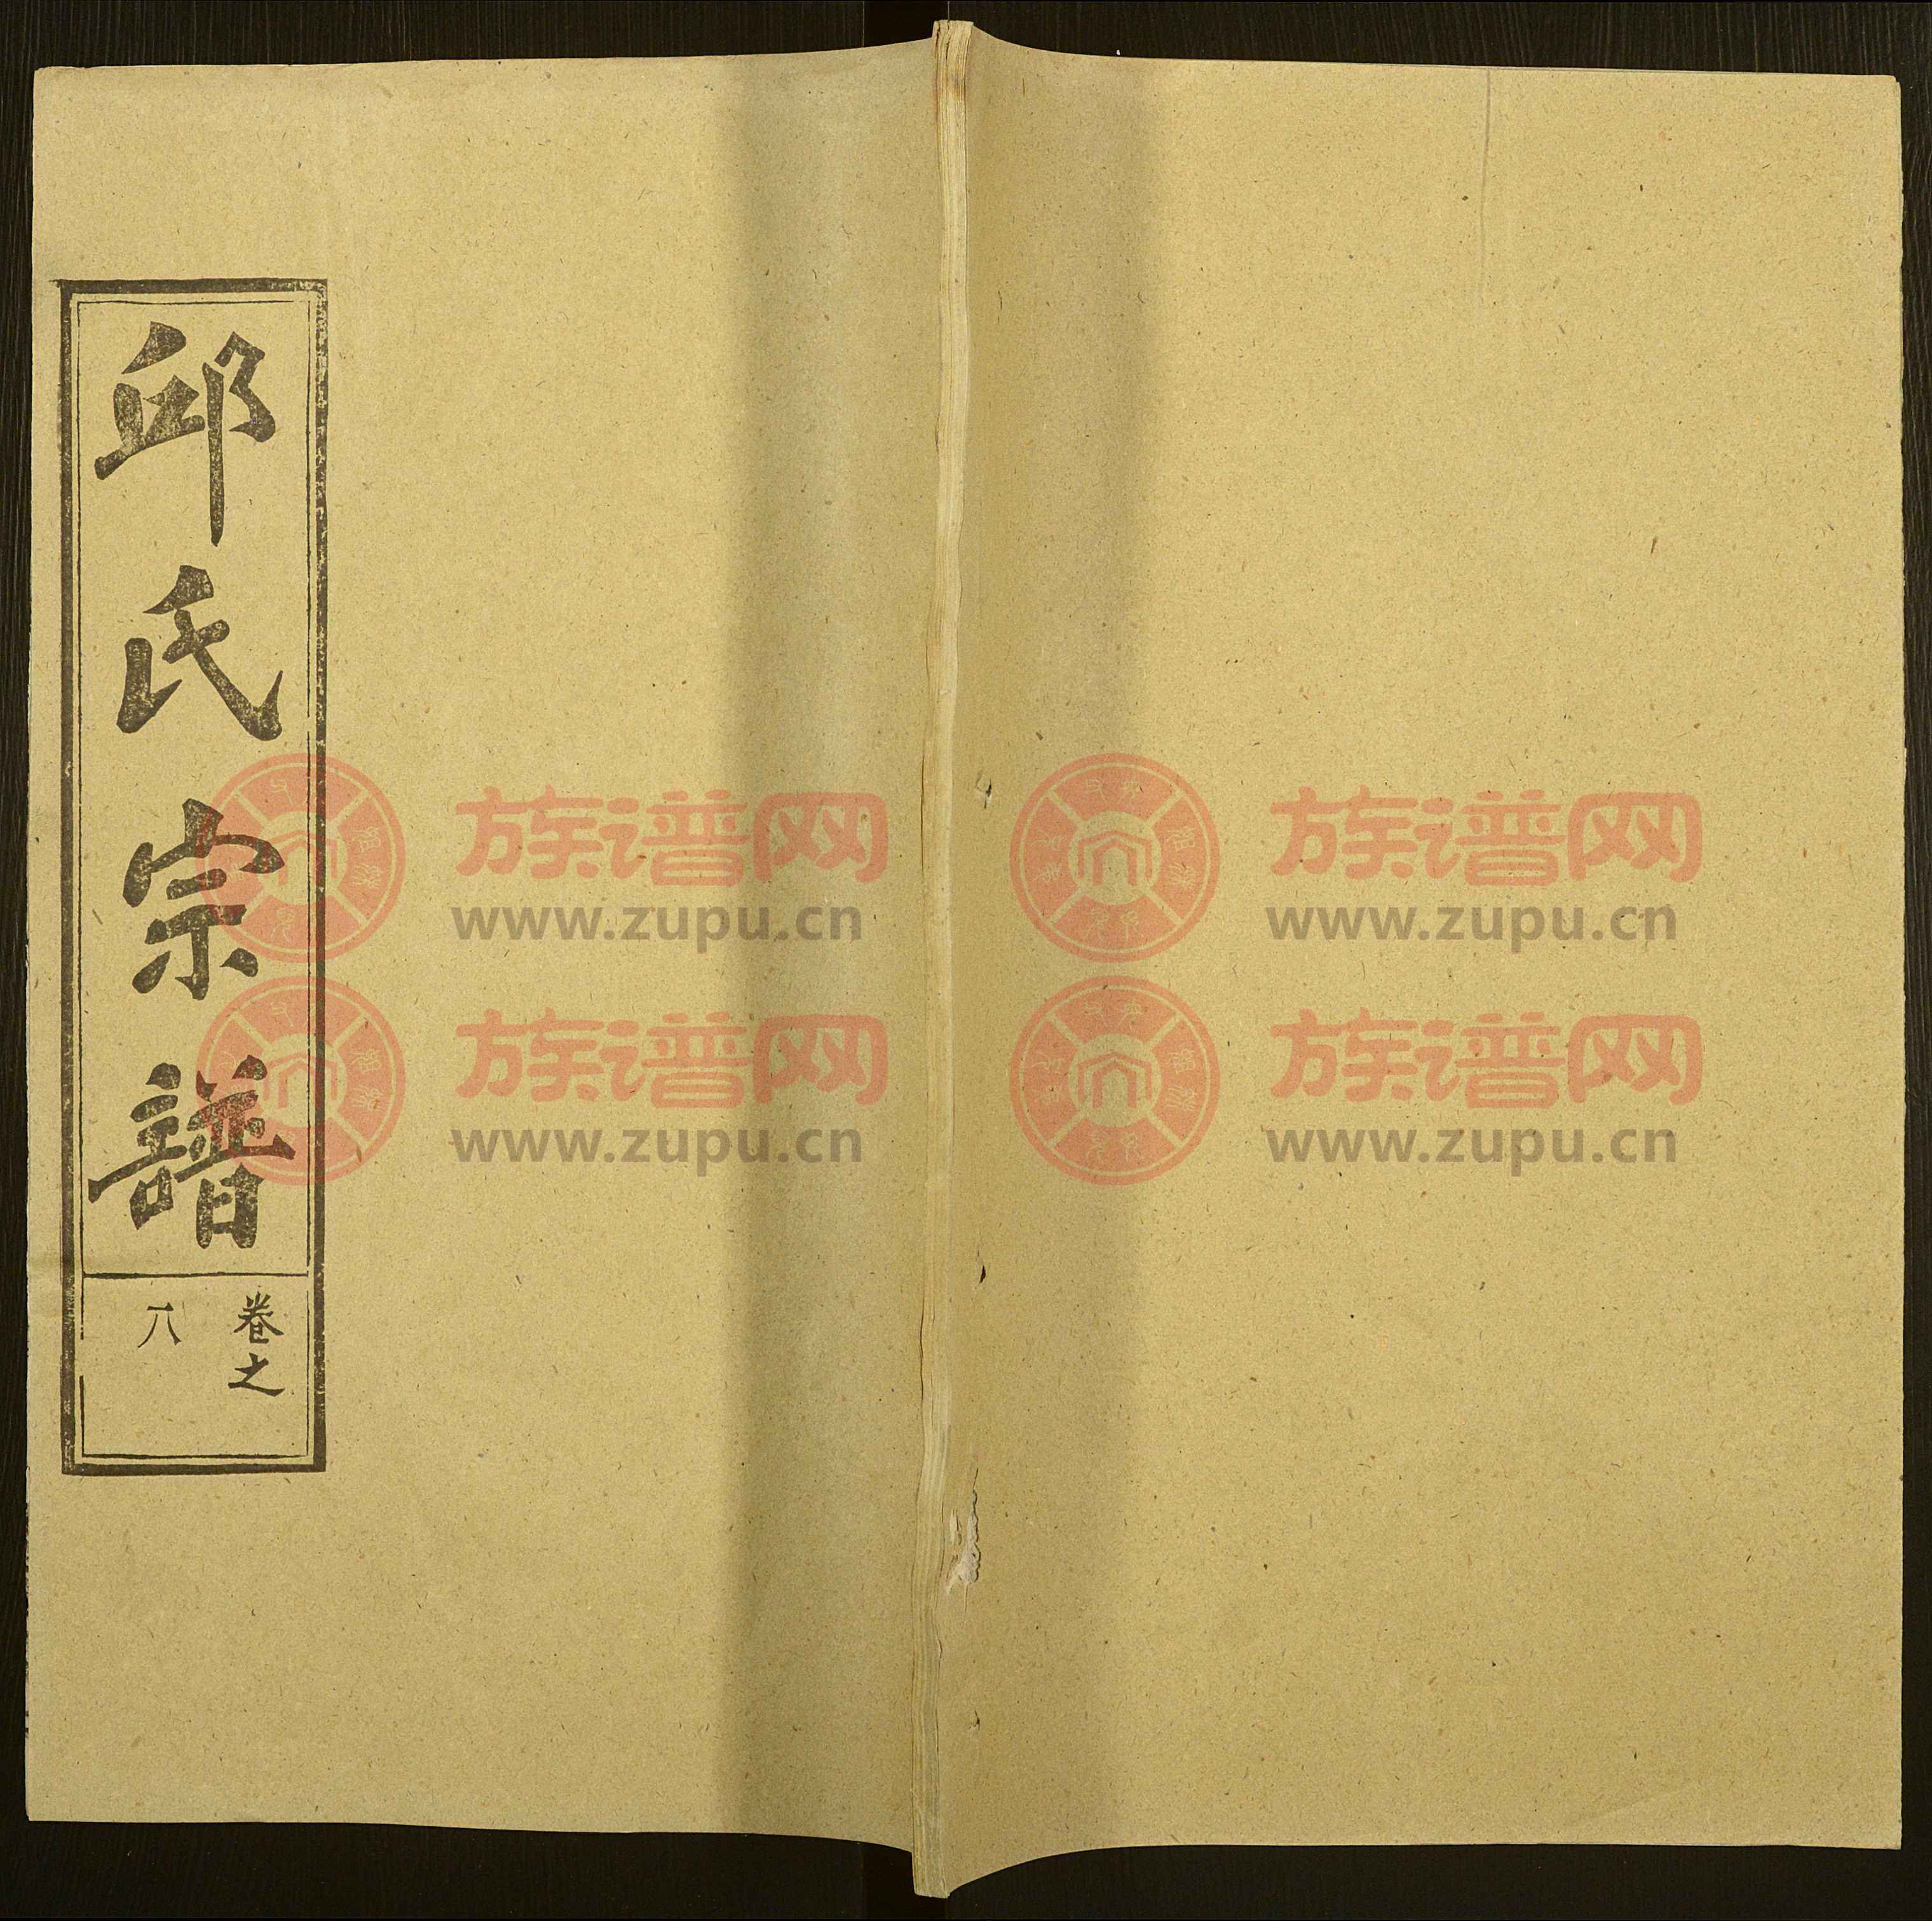 邱氏宗譜
卷之
八
族谱网
www.zupu.cn
族谱网
www.zupu.cn
族谱网
www.zupu.cn
族谱网
www.zupu.cn